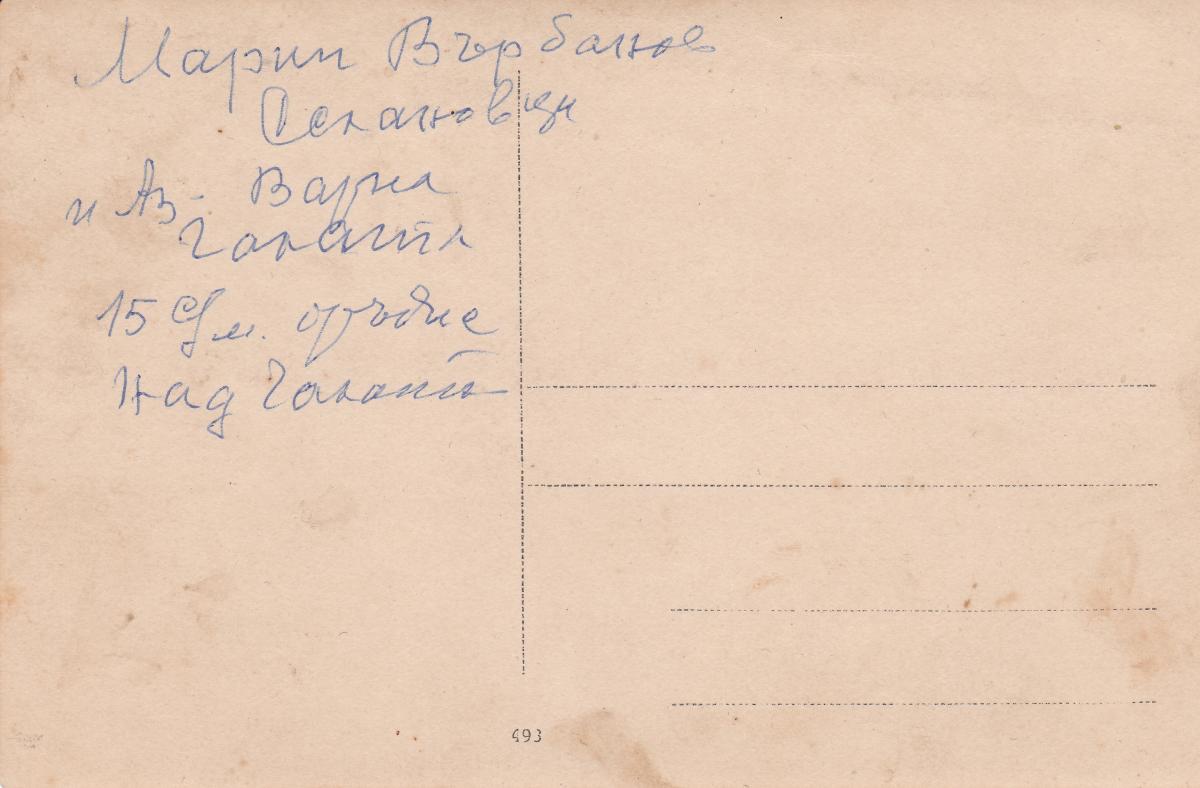 Марин Върбанов
Селановци
и Аз - Варна
Галата
15 см. оръдие
Над Галата
493